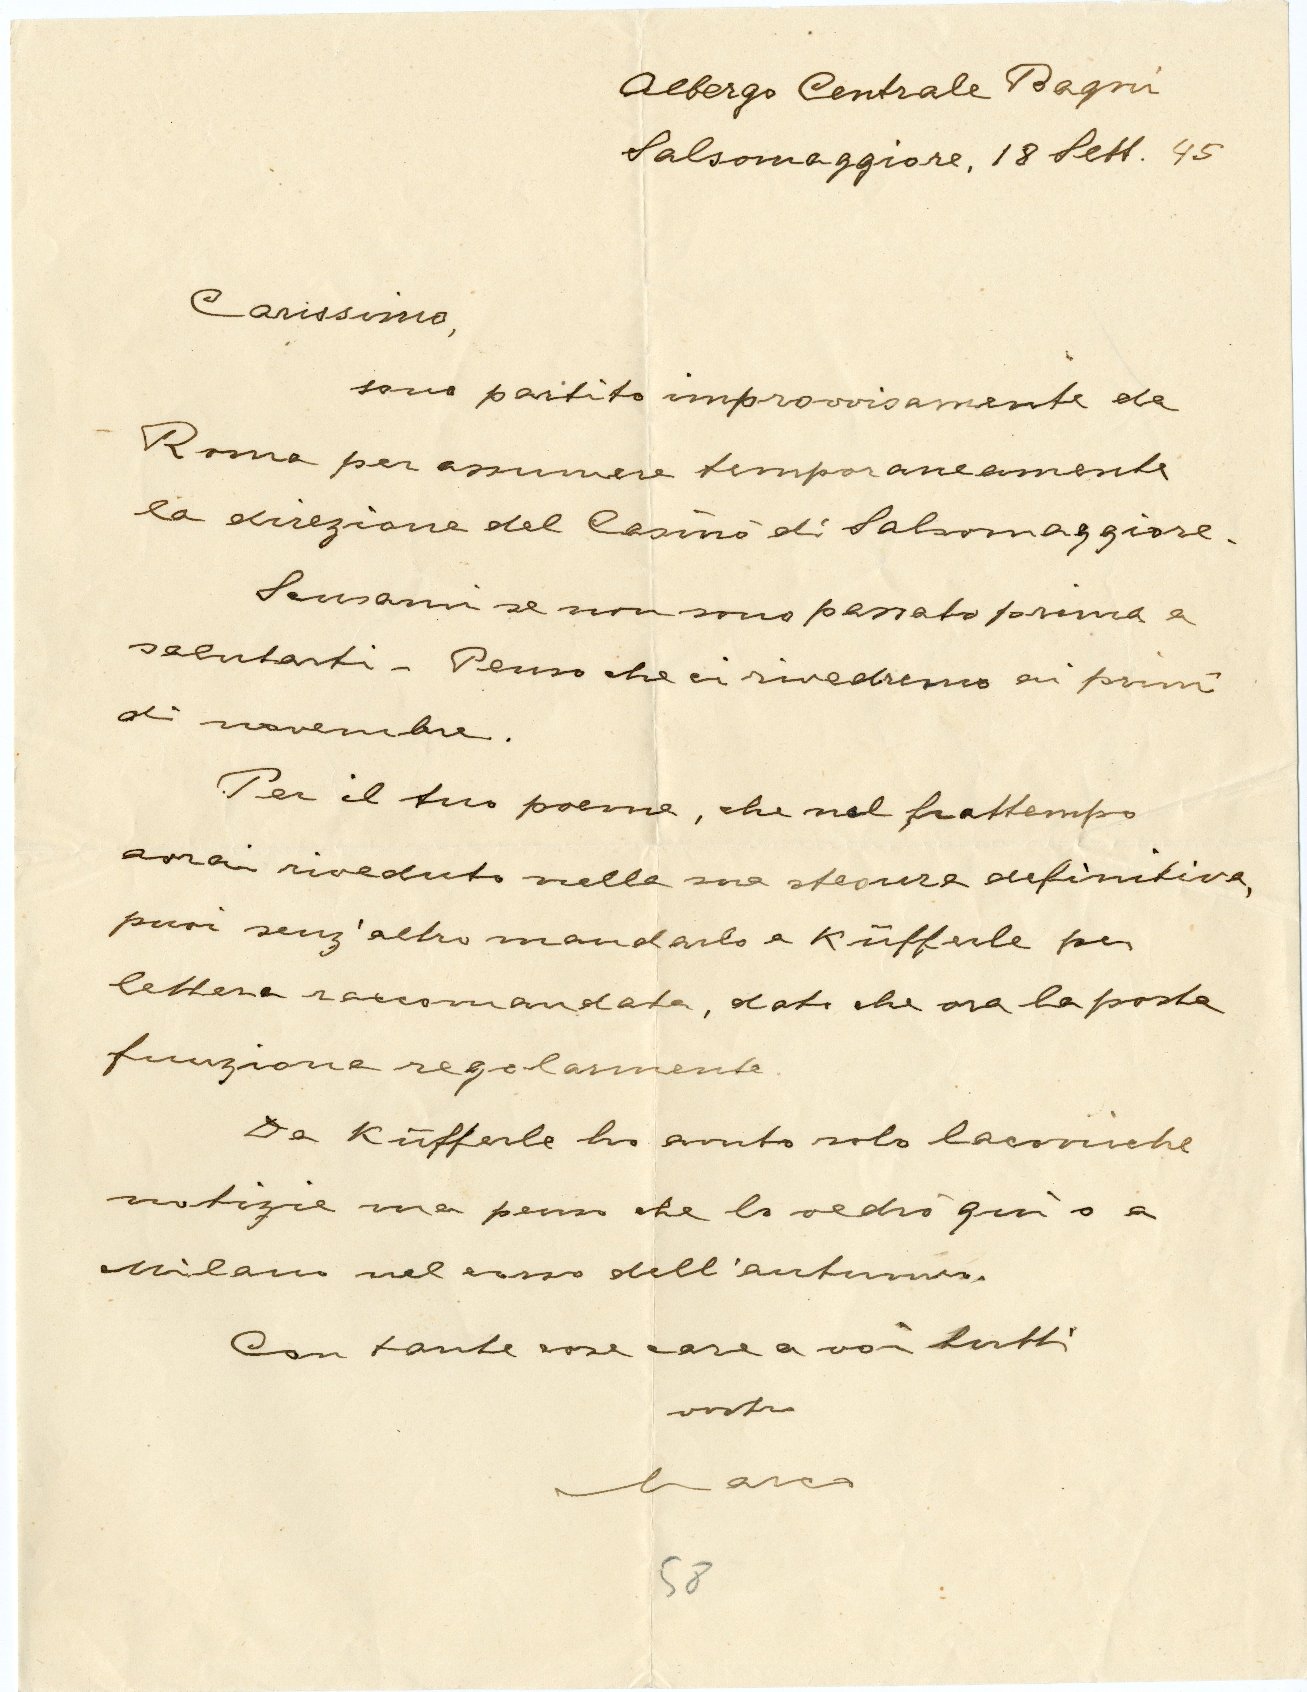 Albergo Centrale Bagni
Salsomaggiore, 18 Sett. 45
Carissimo,
sono partito improvvisamente da
Roma per assumere temporaneamente
la direzione del Casinò di Salsomaggiore.
Scusami se non sono passato prima a
salutarti - Penso che ci rivedremo ai primi
di novembre.
Per il tuo poema, che nel frattempo
avrai riveduto nella sua stesura definitiva,
puoi senz'altro mandarlo a Küfferle per
lettera raccomandata, dato che ora la posta
funziona regolarmente.
Da Küfferle ho avuto solo laconiche
notizie ma penso che lo vedrò qui o a
Milano nel corso dell'autunno.
Con tante cose care a voi tutti
vostro
Marco
58